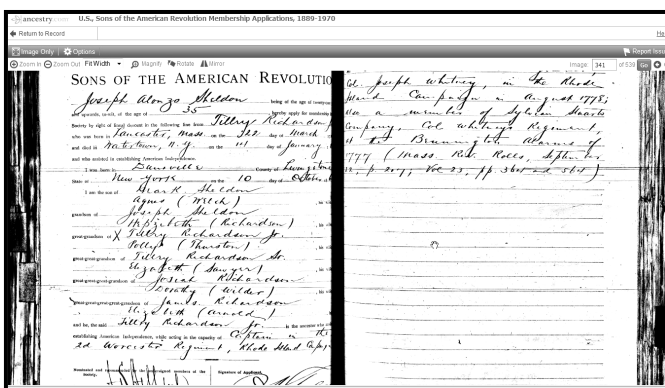 ancestry.com U.S., Sons of the American Revolution Membership Applications, 1889-1970
Return to Record
Image Only Options Report Issu
Zoom In Zoom Out Fit Width Magnify Rotate Mirror Image: 341 of 539 Go
SONS OF THE AMERICAN REVOLUTIO
Joseph Alonzo Sheldon being of the age of twenty-one
and upwards, to-wit, of the age of 35 hereby apply for membership
Society by right of lineal descent in the following line from Tillry Richardson
who was born in Lancaster, Mass. on the 322 day of March
and died in Watertown, N.Y. on the day of January
and who assisted in establishing American Independence.
I was born in Dansville County of Livingstone
State of New-York on the 10 day of October
I am the son of Mark Sheldon
Agnes (Welch)
grandson of Joseph Sheldon
Hepizibeth (Richardson)
great-grandson of X Tillry Richardson Jr.
Polly (Thurston)
great-great-grandson of Tillry Richardson Sr.
Elizabeth (Sawyer)
great-great-great-grandson of Josiah Richardson
Dorothy (Wilder)
great-great-great-great-grandson of James Richardson
Elizabeth (Arnold)
and he, the said Tillry Richardson Jr. is the ancestor who
establishing American Independence, while acting in the capacity of Captain in the
2d Worcester Regiment, Rhode Island
Nominated and signed members of the Signature of Applicant
Society.
Col. Joseph Whitney, in the Rhode
Island Campaign in August 1778;
also a member of Sylvan
Company, Col Whitneys Regiment,
at the Bennington Alarms of
777 (Mass. Rev. Rolls,
p 207; Vol 23, pp.